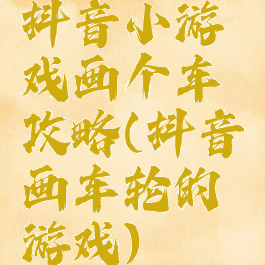 抖音小游
戏画个车
攻略(抖音
画车轮的
游戏)